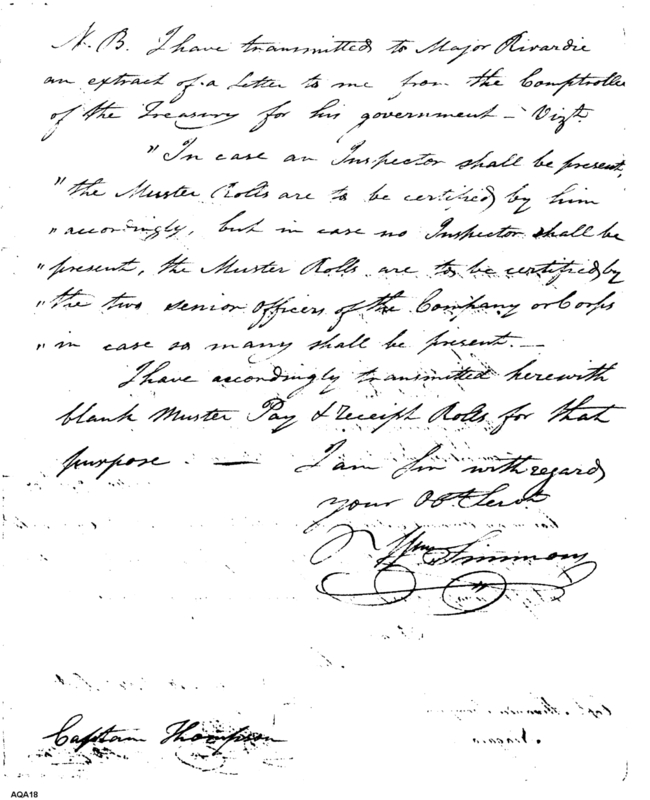 N. B. I have transmitted to Major Rivardie
an extract of a Letter to me from the Comptroller
of the Treasury for his government – Vizt.
"In case an Inspector shall be present,
" the Muster Rolls are to be certified by him
" accordingly, but in case no Inspector shall be
" present, the Muster Rolls are to be certified by
" the two senior officers of the Company or Corps
" in case so many shall be present. —
I have accordingly transmitted herewith
blank Muster Pay & receipt Rolls for that
purpose. — I am Sir with regard
your Obt Servt
Wm Simmons
Captain Thompson
AQA18